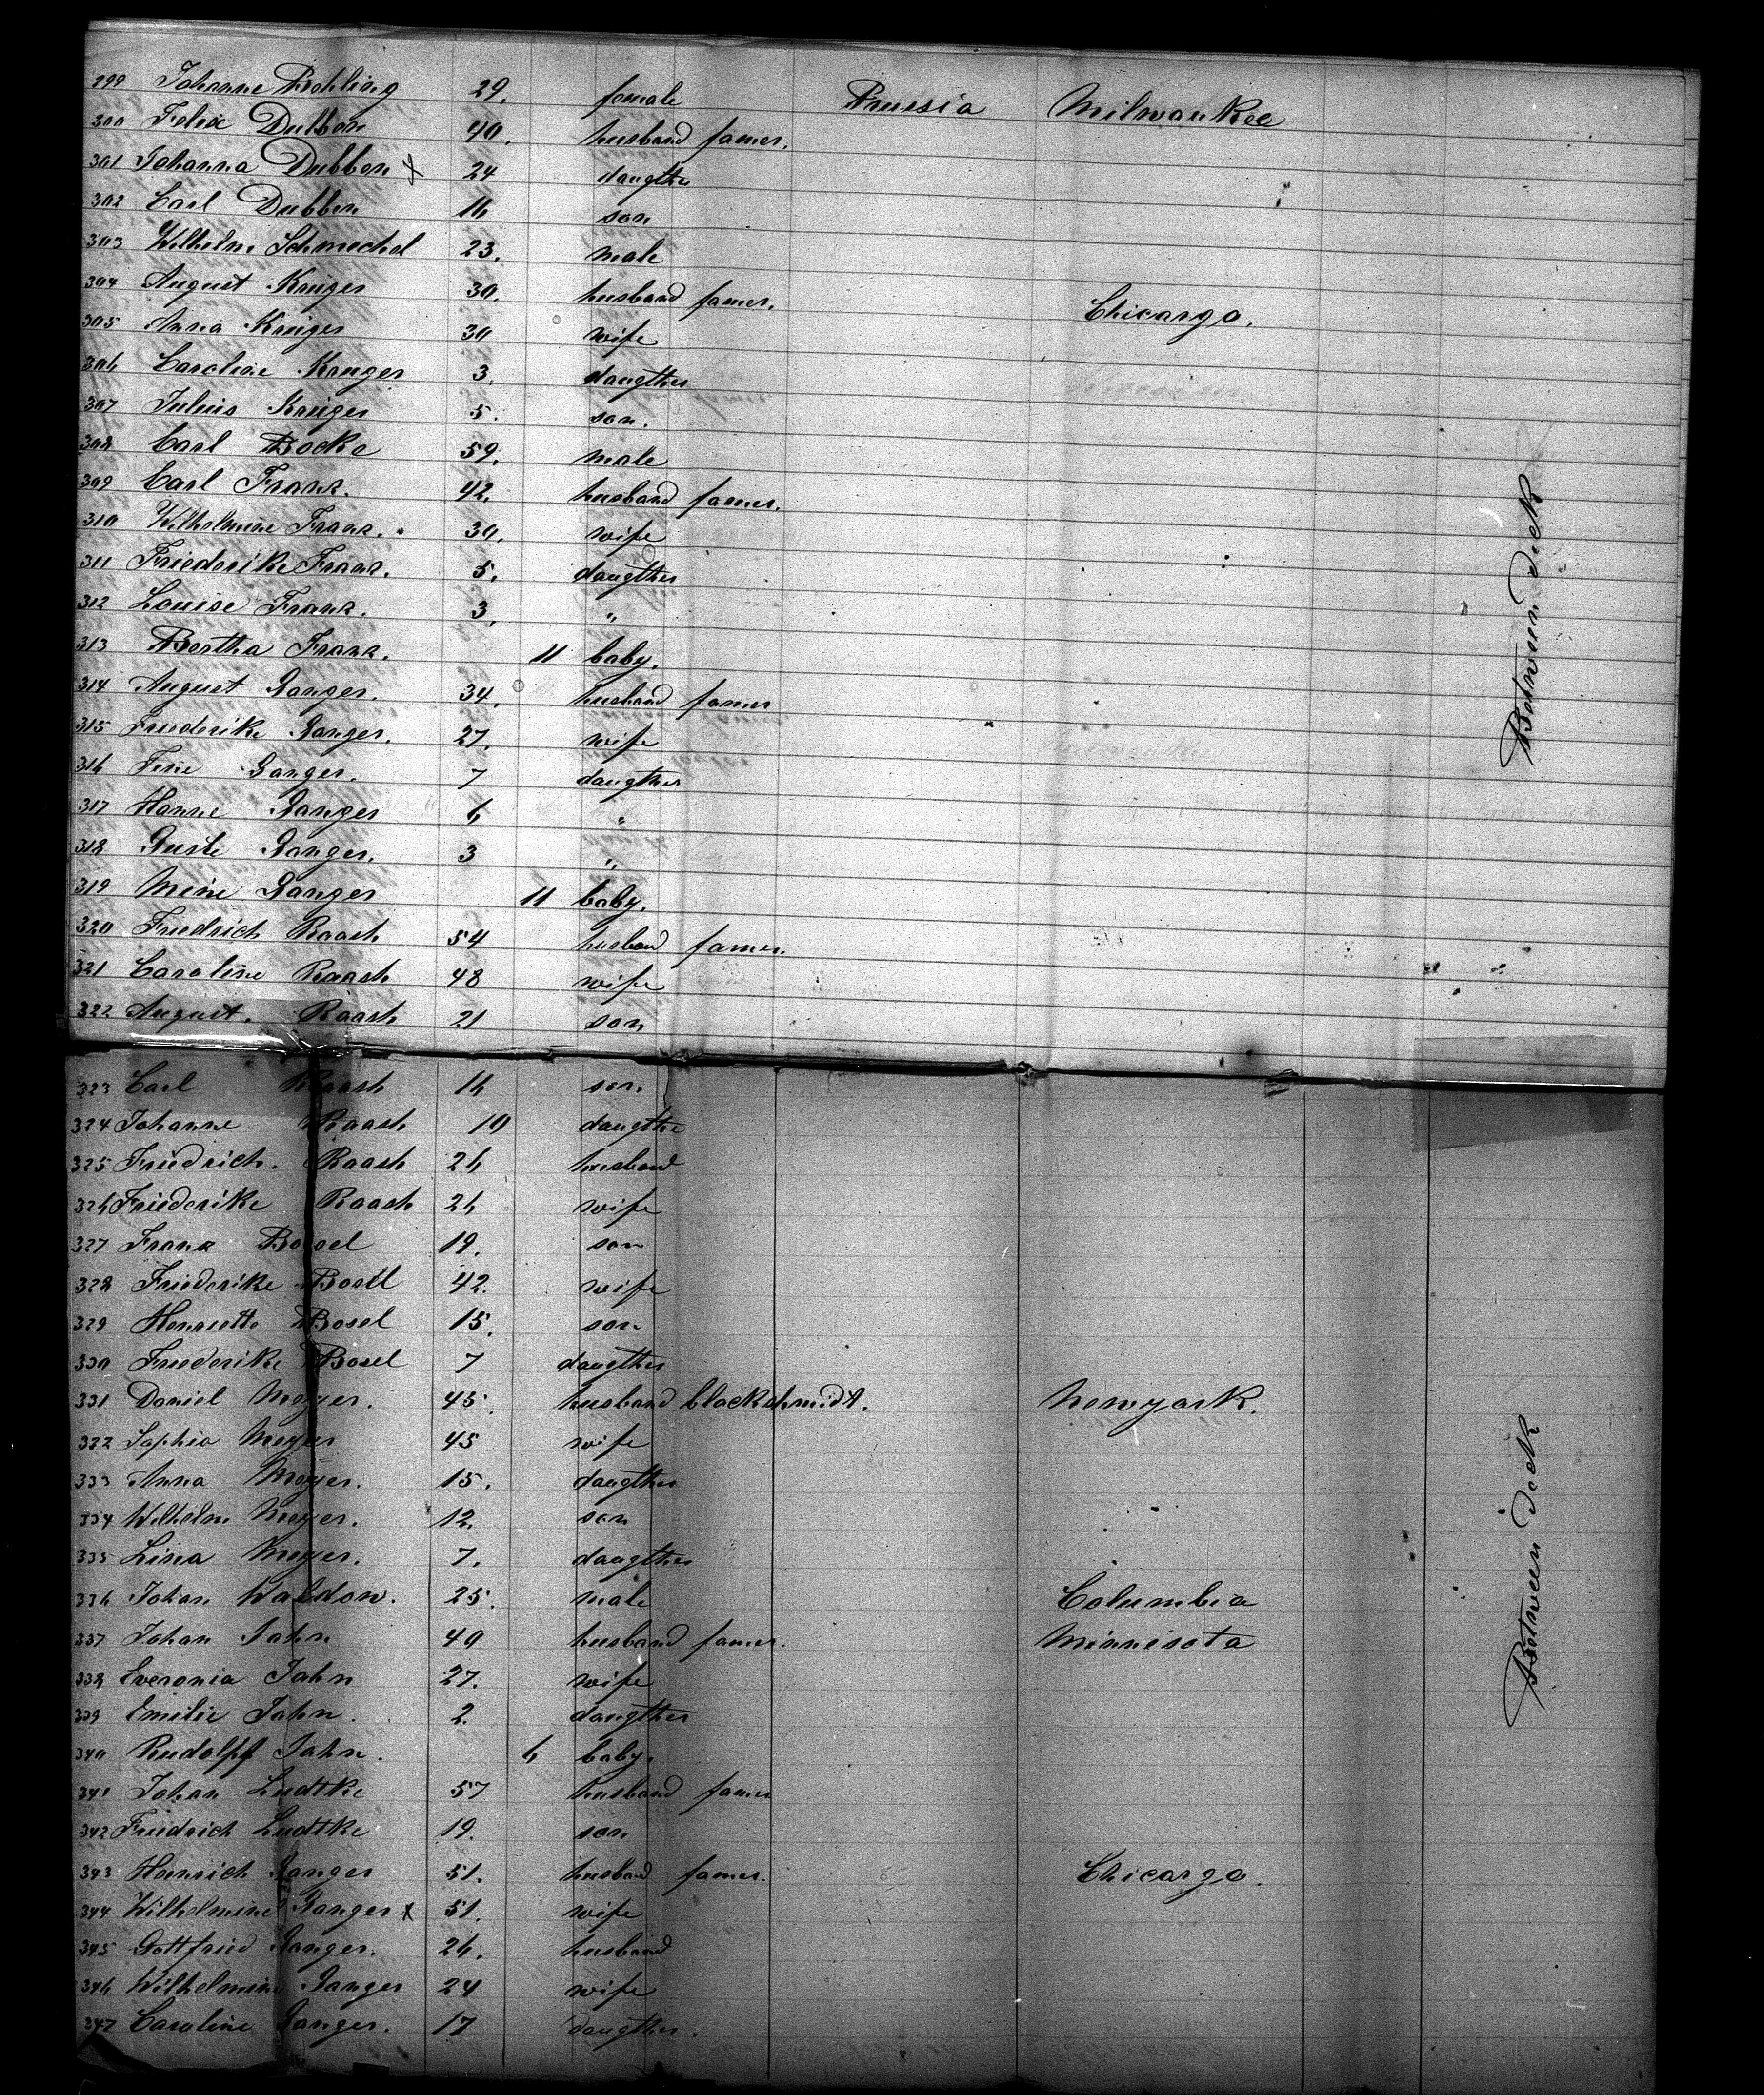 299 Johanne Bohling 29. female Prussia Milwaukee
300 Felix Dubbon 40. husband famer.
301 Johanna Dubbon x 24 daugther
302 Carl Dubbon 16 son
303 Wilhelm Schmechel 23. male
304 August Krüger 30. husband famer. Chicargo.
305 Anna Krüger 30 wife
306 Caroline Kruger 3. daugther
307 Julius Krüger 5. son.
308 Carl Bocke 59. male
309 Carl Franz. 42. husband famer.
310 Wilhelmine Franz. 30. wife
311 Friederike Franz. 5. daugther
312 Louise Franz. 3. "
313 Bertha Franz. 11 baby.
314 August Ganger. 34. husband famer
315 Friederike Ganger. 27. wife
316 Fine Ganger. 7 daugther
317 Hanne Ganger 6 "
318 Guste Ganger. 3 "
319 Mine Ganger 11 baby.
320 Friedrich Raash 54 husband famer.
321 Caroline Raash 48 wife
322 August. Raash 21 son
323 Carl Raash 16 son.
324 Johanne Raash 10 daugther
325 Friedrich. Raash 26 husband
326 Friederike Raash 26 wife
327 Franz Bosel 19. son
328 Friederike Bosel 42. wife
329 Henriette Bosel 15. son
330 Friederike Bosel 7 daugther
331 Daniel Meyer. 45. husband blackshmidt. Newyork.
332 Sophia Meyer 45 wife
333 Anna Meyer. 15. daugther
334 Wilhelm Meyer. 12. son
335 Lina Meyer. 7. daugther
336 Johan Waldow. 25. male Columbia
337 Johan Jahn 40 husband famer. Minnesota
338 Everonia Jahn 27. wife
339 Emilie Jahn. 2. daugther
340 Rudolff Jahn. 6 baby.
341 Johan Ludtke 57 husband famer
342 Friedrich Ludtke 19. son
343 Heinrich Ganger 51. husband famer. Chicargo.
344 Wilhelmine Ganger x 51. wife
345 Gottfried Ganger. 26. husband
346 Wilhelmine Ganger 24 wife
347 Caroline Ganger. 17 daugther.
Between deck
Between deck